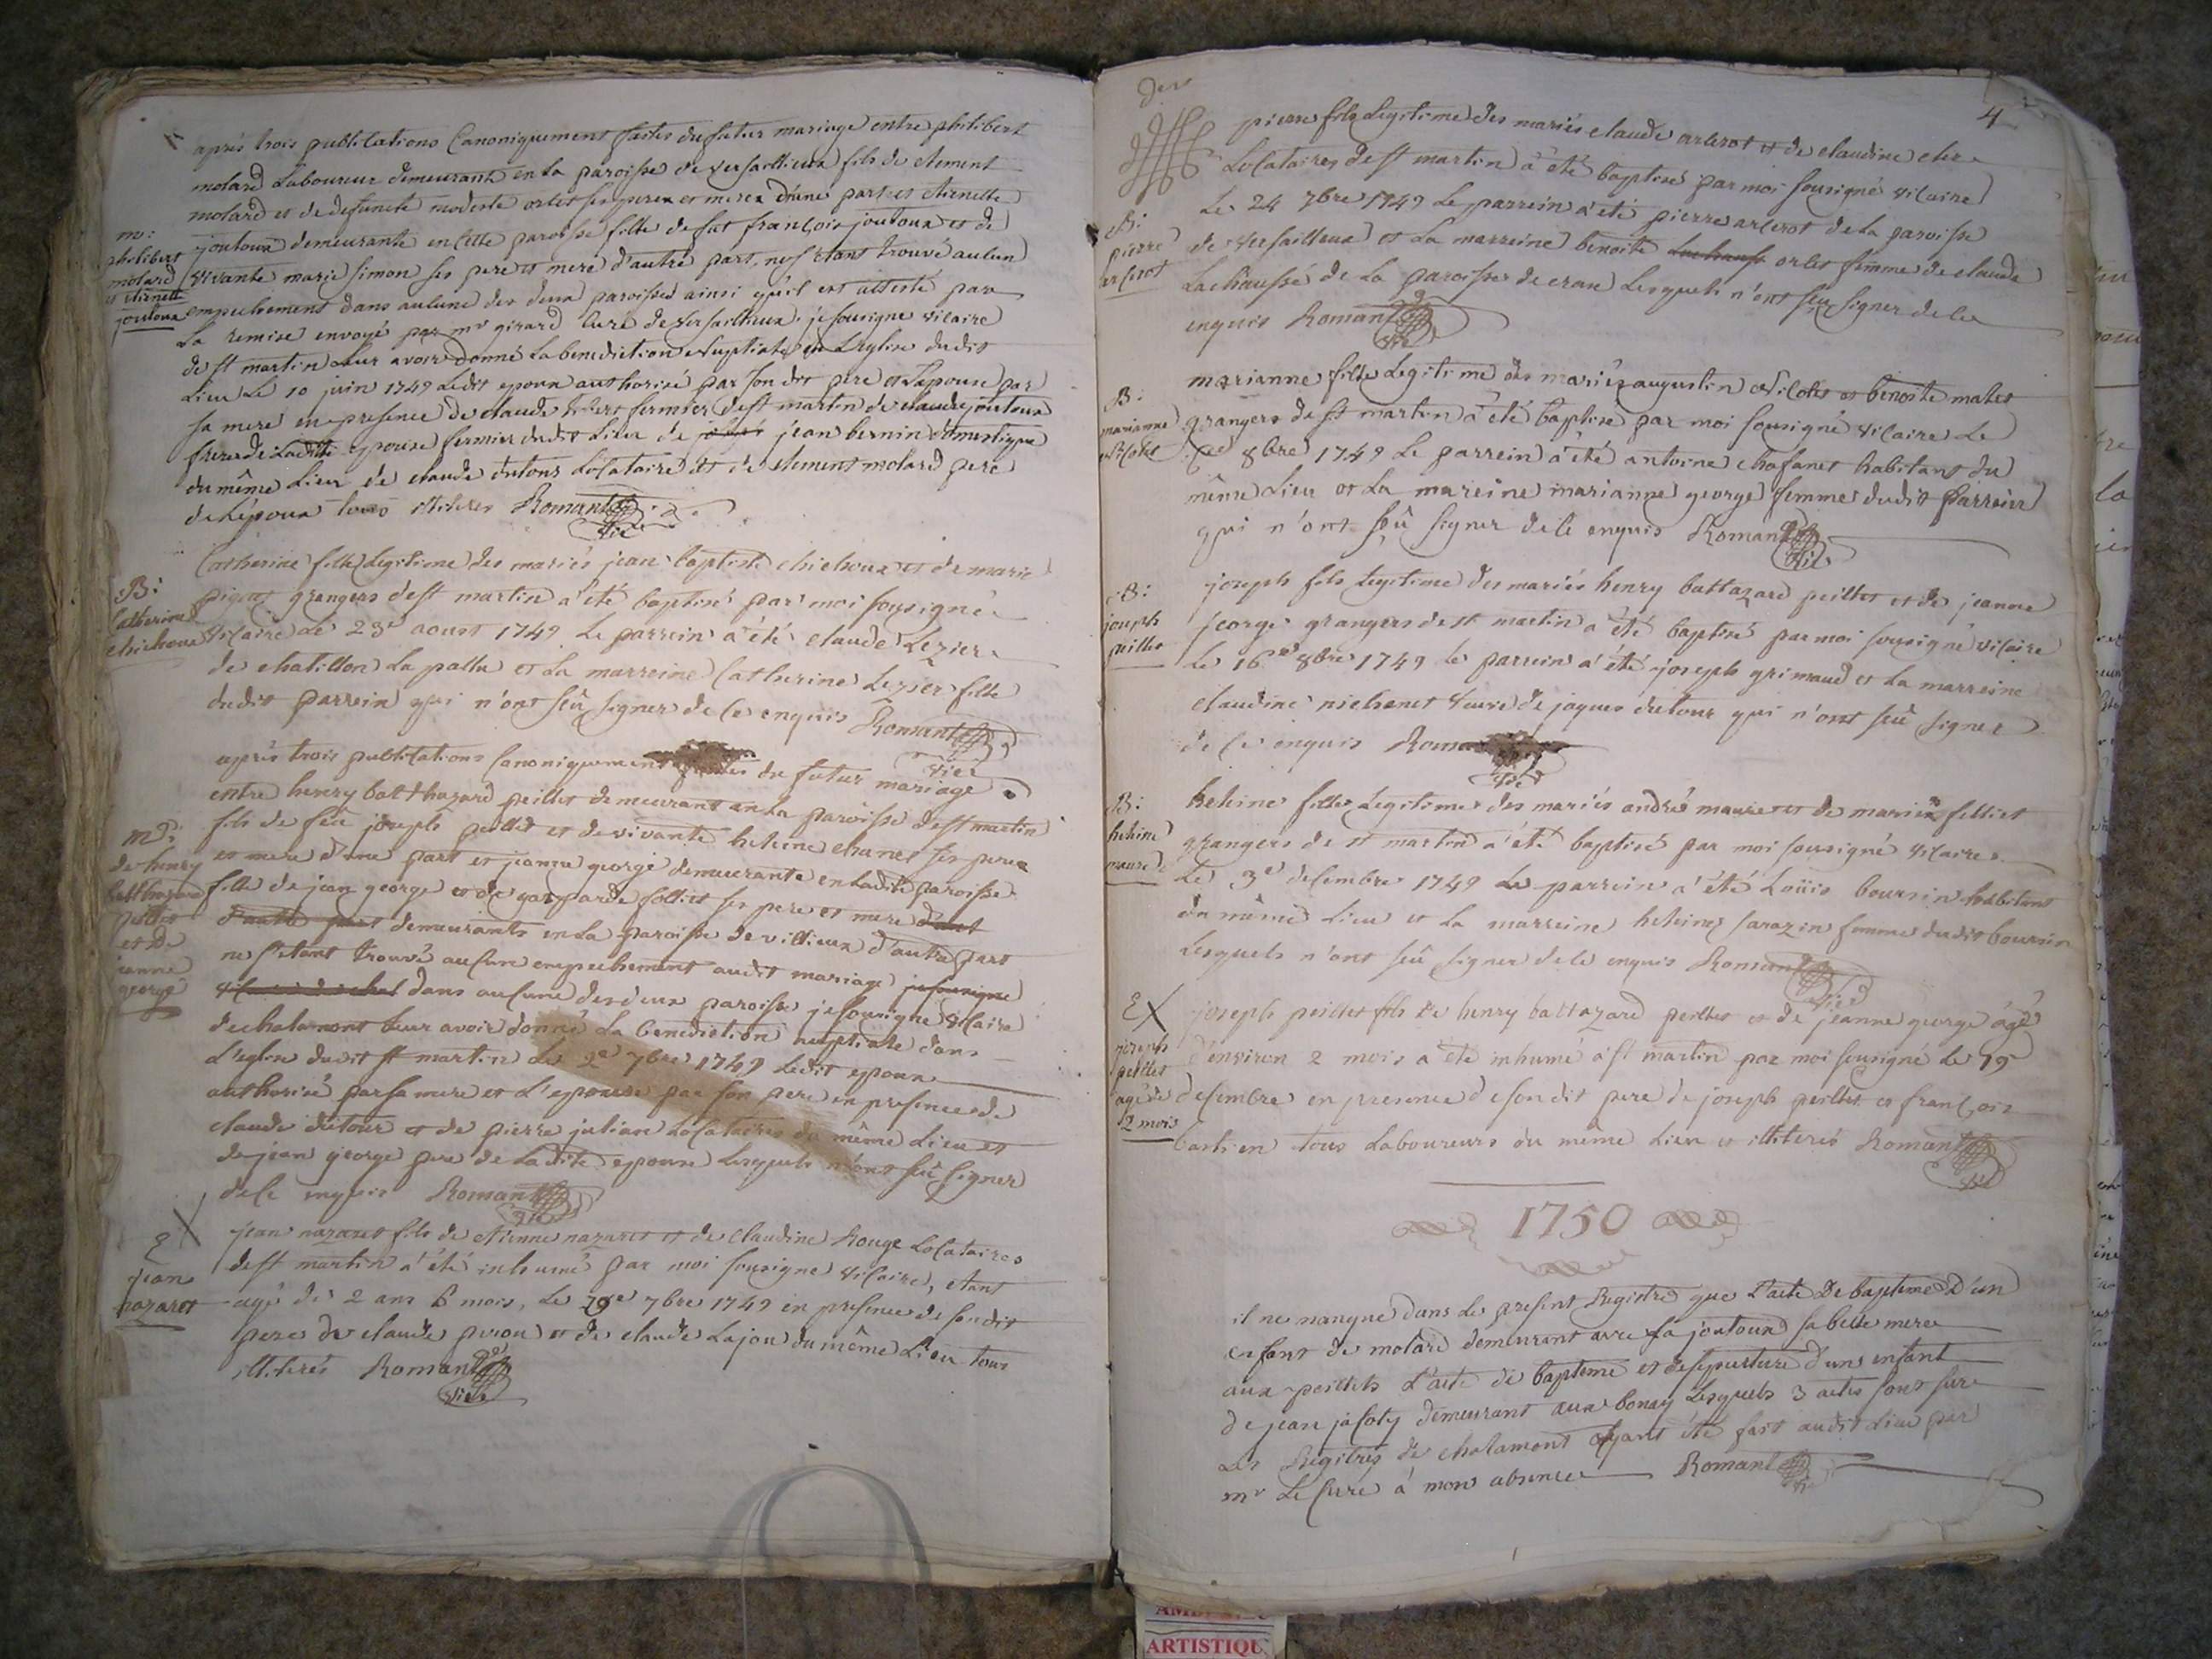 après trois publications Canoniquement faites du futur mariage entre philibert
molard Laboureur demeurant en la paroisse de versaillieux fils de clement
molard et de defuncte modeste orlet ses perex et merex d'une part et etiennette
m:
philibert
molard
et etiennette
joutoux
joutoux demeurante en cette paroisse fille de fut françois joutoux et de
vivante marie simon ses pere et mere d'autre part, ne s'etant trouvé aucun
empechement dans aucune des deux paroisses ainsi qu'il est attesté par
La remise envoyé par mr girard Curé de versaillieux, je sousigne vicaire
de st martin Leur avoir donné La benediction Nuptiale en L'eglise dudit
Lieu Le 10 juin 1749 Ledit epoux authorisé par son dit pere et L'epouse par
sa mere en presence de claude fermier de st martin de claude joutoux
frere de Laditte epouse fermier dudit Lieu de jean bernin domestique
du même Lieu de claude dutour Locataire et de clement molard pere
de L'epoux tous illiterés Romant
vic
B:
Catherine
chichoux
Catherine fille Legitime des mariés jean baptiste chichoux et de marie
pigat grangers de st martin a été baptisé par moi sousigné
vicaire Le 23e aoust 1749 Le parrein a été claude Lezier
de chatillon La pallu et La marreine Catherine Lezier fille
dudit parrein qui n'ont seû signer de ce enquis Romant
vic
après trois publications Canoniquement faites du futur mariage
entre henry balthazard peillet demeurant en La paroisse de st martin
fils de feu joseph peillet et de vivante heleine chanel ses pere
et mere d'une part et jeanne george demeurante en Ladite paroisse
mr:
de henry
balthazard
peillet
et de
jeanne
george
fille de jean george et de gasparde folliet ses pere et mere d'aut
d'autre part demeurants en La paroisse de villieux d'autre part
ne s'etant trouvé aucun empechement audit mariage je sousigne
dans aucune des deux paroisse je sousigné vicaire
de chalamont Leur avoir donné La benediction nuptiale dans
L'eglise dudit st martin Le 2e 7bre 1749 Ledit epoux
authorisé par sa mere et L'epouse par son pere en presence de
claude dutour et de pierre julian Locataires du même Lieu et
de jean george pere de Ladite epouse Lesquels n'ont seû signer
de ce enquis Romant
vic
E
jean
nazaret
jean nazaret fils de etienne nazaret et de claudine Rouge Locataires
de st martin a été inhumé par moi sousigné vicaire, etant
agé de 2 ans 6 mois, Le 29e 7bre 1749 en presence de sondit
pere de claude piron et de claude Lajou du même Lieu tous
illiterés Romant
vic
4
B:
pierre
arlerot
pierre fils Legitime des mariés claude arlerot et de claudine
Locataires de st martin a été baptisé par moi sousigné vicaire
Le 24 7bre 1749 Le parrein a été pierre arlerot de La paroisse
de versailleux et La marreine benoite orlet femme de claude
Lachaussé de La paroisse de cran Lesquels n'ont seu signer de ce
enquis Romant
vic
B:
marianne
marianne fille Legitime des mariés augustin et benoite matet
grangers de st martin a été baptisé par moi sousigné vicaire Le
8bre 1749 Le parrein a été antoine chafanet habitant du
même Lieu et La mareine marianne george femme dudit parrein
qui n'ont seû signer de ce enquis Romant
vic
B:
joseph
peillet
joseph fils Legitime des mariés henry baltazard peillet et de jeanne
george grangers de st martin a été baptisé par moi sousigné vicaire
Le 16e 8bre 1749 Le parrein a été joseph grimaud et La marreine
claudine nichonet veuve de jaques dutour qui n'ont seû signer
de ce enquis Romant
vic
B:
heleine
maure
heleine fille Legitime des mariés andré maure et de marie filliet
grangers de st martin a été baptisé par moi sousigné vicaire
Le 3e decembre 1749 Le parrein a été Loüis boursin habitant
du même Lieu et La marreine heleine sarazin femme dudit boursin
Lesquels n'ont seû signer de ce enquis Romant
vic
E
joseph
peillet
agé de
2 mois
joseph peillet fils de henry baltazard peillet et de jeanne george âgé
d'environ 2 mois a été inhumé a st martin par moi sousigné Le 19
decembre en presence de son dit pere de joseph peillet et françois
bastien tous Laboureurs du même Lieu et illiterés Romant
vic
1750
il ne manque dans Le present Registre que L'acte De baptême D'un
enfant de molard demeurant avec La joutoux sa belle mere
aux peillets L'acte de baptême et de sepulture d'un enfant
de jean jacoty demeurant aux bonay Lesquels 3 actes sont sur
Les Registres de chalamont ayant été fait audit Lieu par
mr Le Curé à mon absence Romant
vic
ARTISTIQU